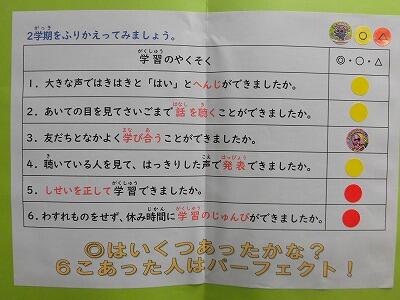 2学期をふりかえってみましょう。
がっき
◎ ○ △
学習のやくそく
がくしゅう
◎・○・△
1.大きな声ではきはきと「はい」とへんじができましたか。
2.あいての目を見てさいごまで話を聴くことができましたか。
はなし き
3.友だちとなかよく学び合うことができましたか。
まな あ
4.聴いている人を見て、はっきりした声で発表できましたか。
き こえ はっぴょう
5.しせいを正して学習できましたか。
がくしゅう
6.わすれものをせず、休み時間に学習のじゅんびができましたか。
じかん がくしゅう
◎はいくつあったかな?
6こあった人はパーフェクト!